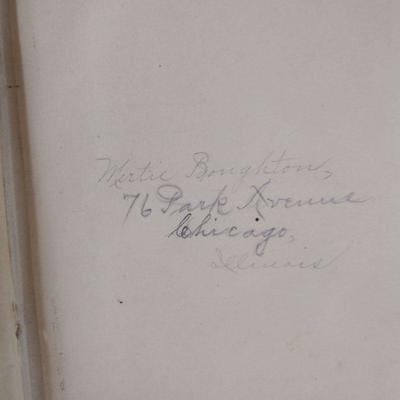 Mertie Boughton,
76 Park Avenue
Chicago,
Illinois